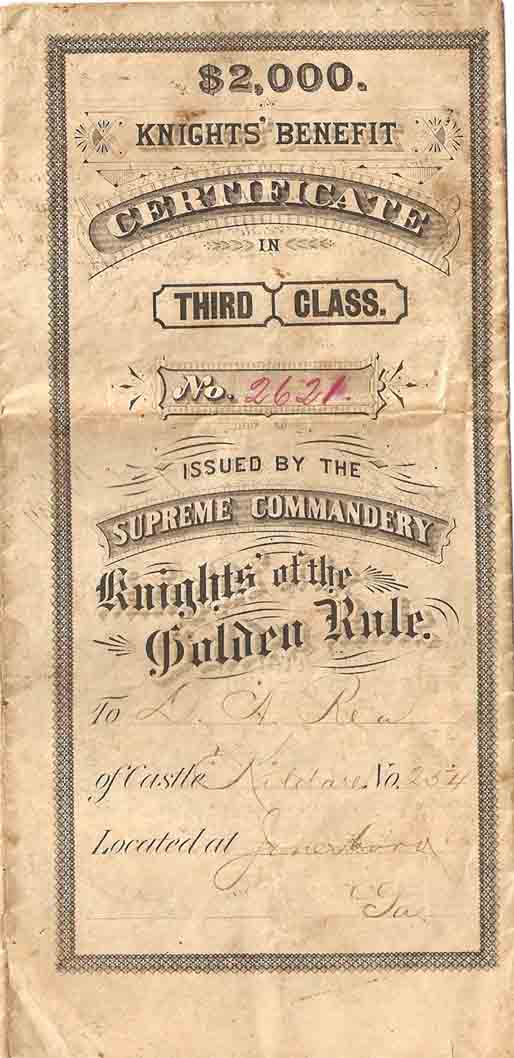 $2,000.
KNIGHTS' BENEFIT
CERTIFICATE
IN
THIRD CLASS.
No. 2621.
ISSUED BY THE
SUPREME COMMANDERY
Knights of the
Golden Rule.
To D. A. Rea
of Castle Kildare No. 254
Located at Jonesboro
Ga